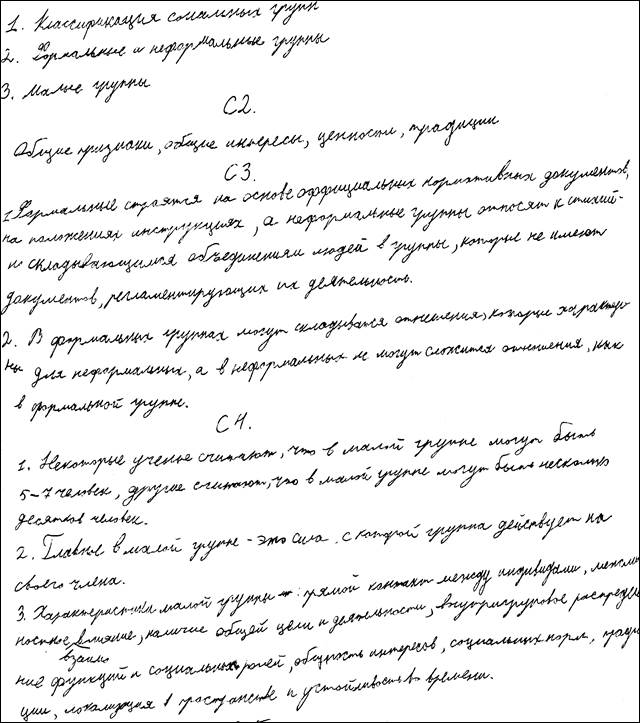 1. Классификация социальных групп
2. Формальные и неформальные группы
3. Малые группы
С2.
Общие признаки, общие интересы, ценности, традиции
С3.
1. Формальные строятся на основе оффициальных нормативных документов,
на положениях инструкциях, а неформальные группы относят к стихий-
но складывающимся объединениям людей в группы, которые не имеют
документов, регламентирующих их деятельность.
2. В формальных группах могут складыватся отношения, которые характер-
ны для неформальных, а в неформальных не могут сложится отношения, как
в формальной группе.
С4.
1. Некоторые ученые считают, что в малой группе могут быть
5-7 человек, другие считают, что в малой группе могут быть несколько
десятков человек.
2. Главное в малой группе - это сила с которой группа действует на
своего члена.
3. Характеристики малой группы: прямой контакт между индивидами, межлич
ностное влияние, наличие общей цели и деятельности, внутригрупповое распределе
взаим
ние функций и социальных ролей, общность интересов, социальных норм, тради
ции, локализация в пространстве и устойчивость во времени.